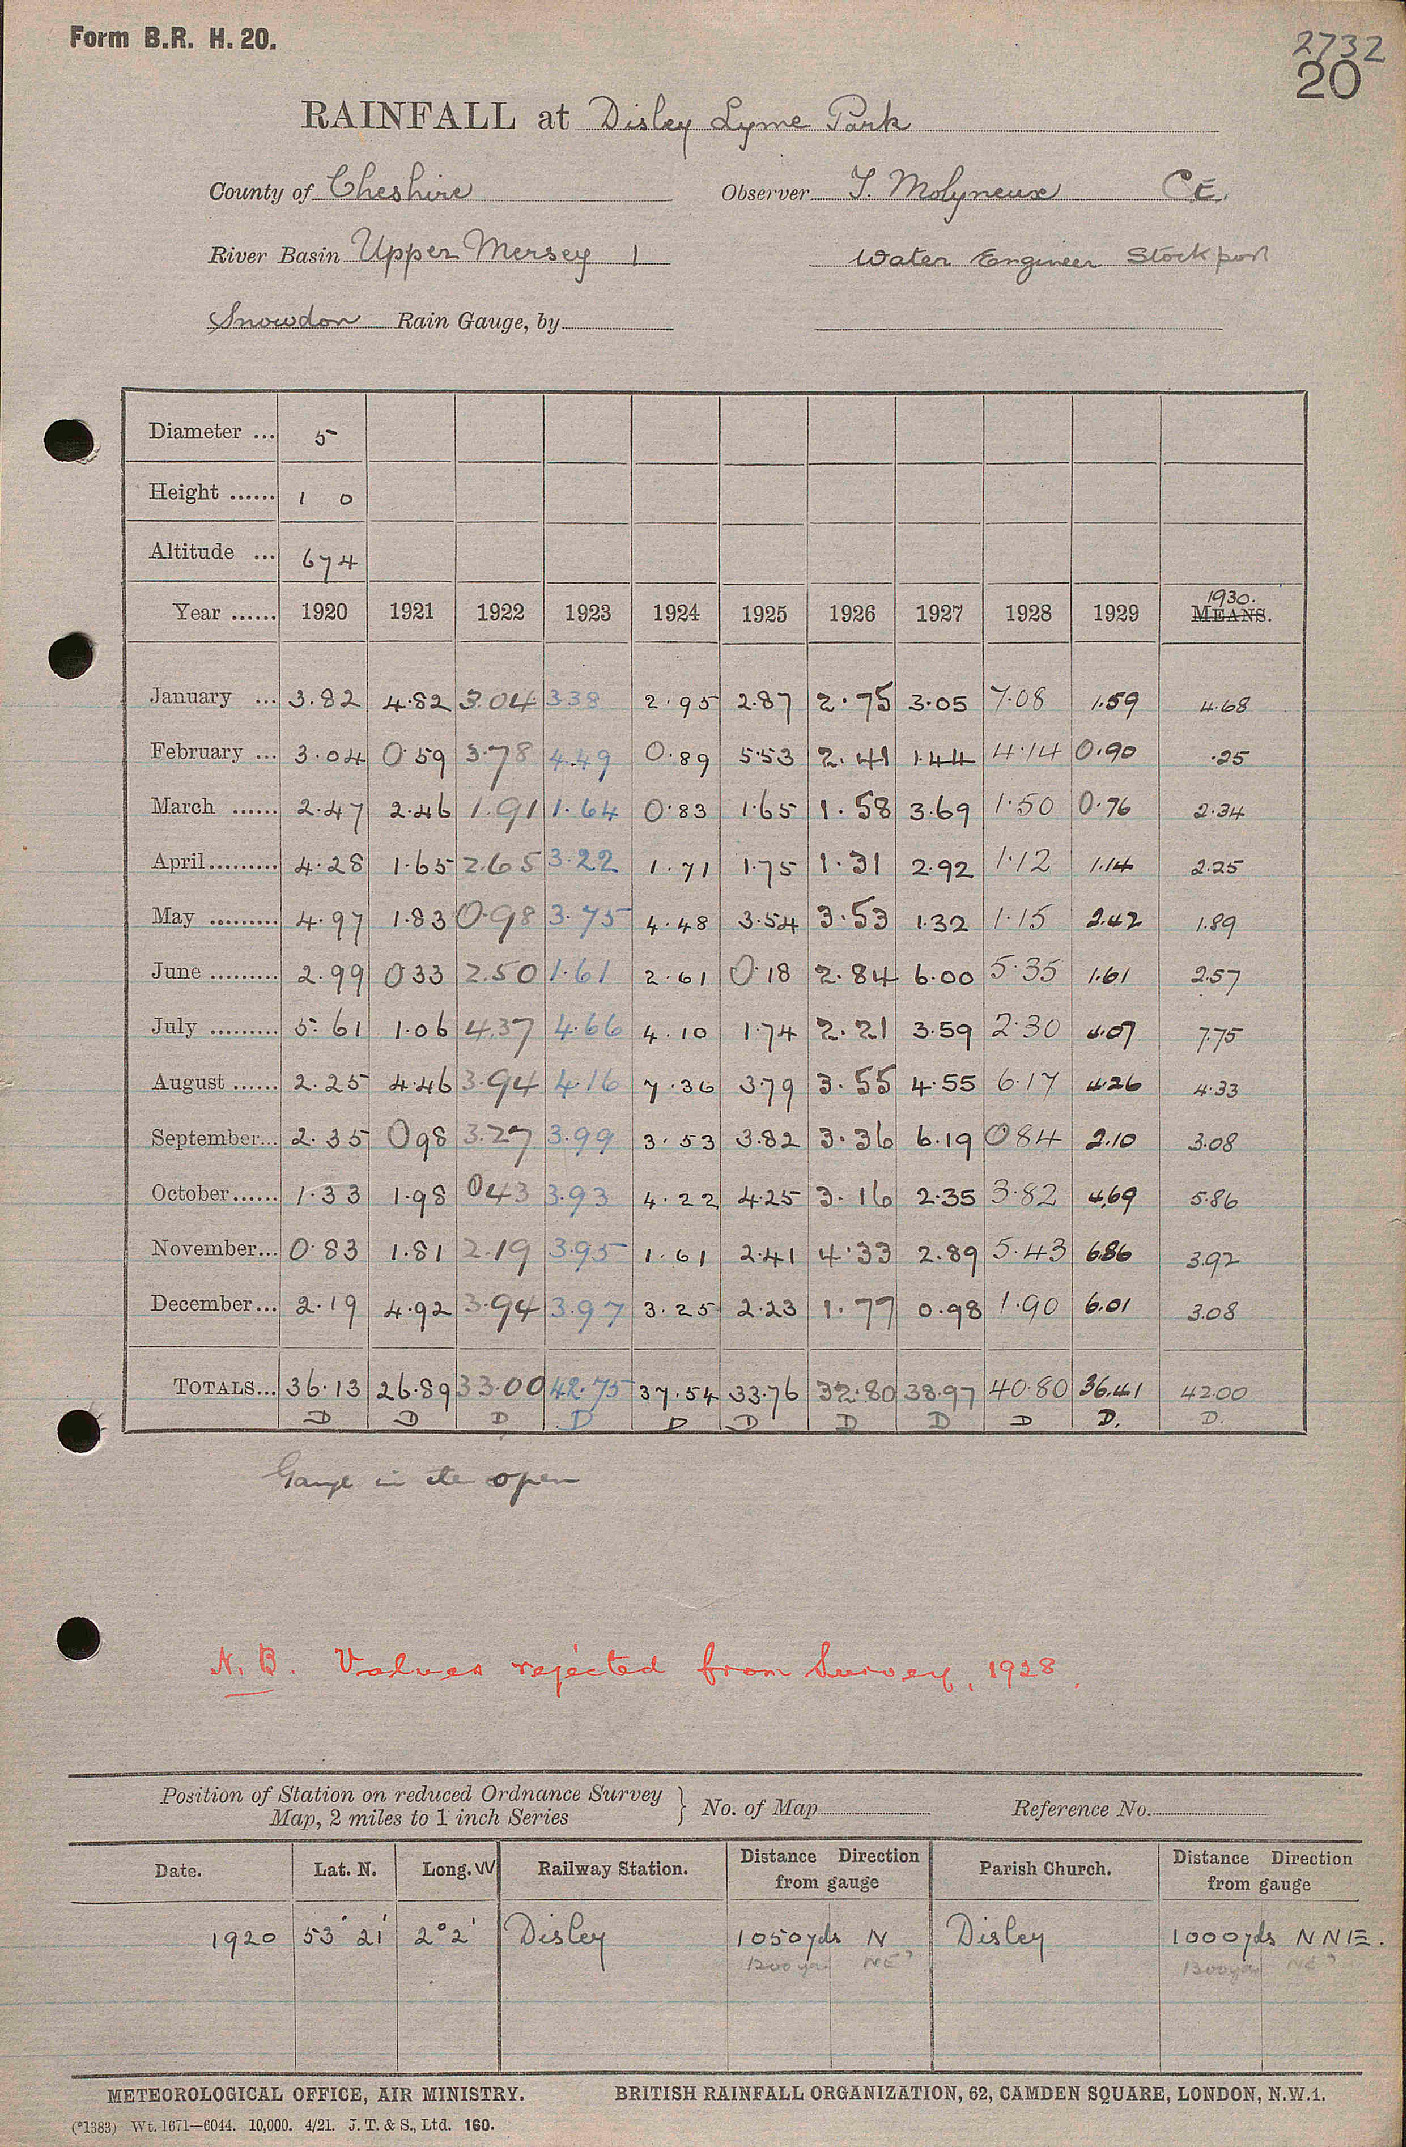 Form B.R. H. 20.
2732
20
RAINFALL at Disley Lyme Park
County of Cheshire Observer T. Molyneux C.E.
River Basin Upper Mersey 1 Water Engineer Stockport
Snowdon Rain Gauge, by
Diameter ... 5
Height ...... 1 0
Altitude ... 674
1930.
Year ...... 1920 1921 1922 1923 1924 1925 1926 1927 1928 1929 MEANS.
January ... 3.82 4.82 3.04 3.38 2.95 2.87 2.75 3.05 7.08 1.59 4.68
February ... 3.04 0.59 3.78 4.49 0.89 5.53 2.41 1.44 4.14 0.90 .25
March ...... 2.47 2.46 1.91 1.64 0.83 1.65 1.58 3.69 1.50 0.76 2.34
April......... 4.28 1.65 2.65 3.22 1.71 1.75 1.31 2.92 1.12 1.14 2.25
May ......... 4.97 1.83 0.98 3.75 4.48 3.54 3.53 1.32 1.15 2.42 1.89
June ......... 2.99 0 33 2.50 1.61 2.61 0.18 2.84 6.00 5.35 1.61 2.57
July ......... 5.61 1.06 4.37 4.66 4.10 1.74 2.21 3.59 2.30 4.07 7.75
August ...... 2.25 4.46 3.94 4.16 7.36 3.79 3.55 4.55 6.17 4.26 4.33
September... 2.35 0 98 3.27 3.99 3.53 3.82 3.36 6.19 0 84 2.10 3.08
October...... 1.33 1.98 0 43 3.93 4.22 4.25 3.16 2.35 3.82 4.69 5.86
November... 0.83 1.81 2.19 3.95 1.61 2.41 4.33 2.89 5.43 6.86 3.92
December... 2.19 4.92 3.94 3.97 3.25 2.23 1.77 0.98 1.90 6.01 3.08
TOTALS... 36.13 26.89 33.00 42.75 37.54 33.76 32.80 38.97 40.80 36.41 42.00
D D D D D D D D D D. D.
Gauge in the open
N.B. Values rejected from Survey, 1928.
Position of Station on reduced Ordnance Survey
Map, 2 miles to 1 inch Series } No. of Map Reference No.
Date. Lat. N. Long. W Railway Station. Distance Direction from gauge Parish Church. Distance Direction from gauge
1920 53° 21' 2° 2' Disley 1050 yds N Disley 1000 yds NNE.
1200 yds NE? 1300 yds NE?
METEOROLOGICAL OFFICE, AIR MINISTRY. BRITISH RAINFALL ORGANIZATION, 62, CAMDEN SQUARE, LONDON, N.W.1.
(*1383) Wt. 1671—6044. 10,000. 4/21. J. T. & S., Ltd. 160.